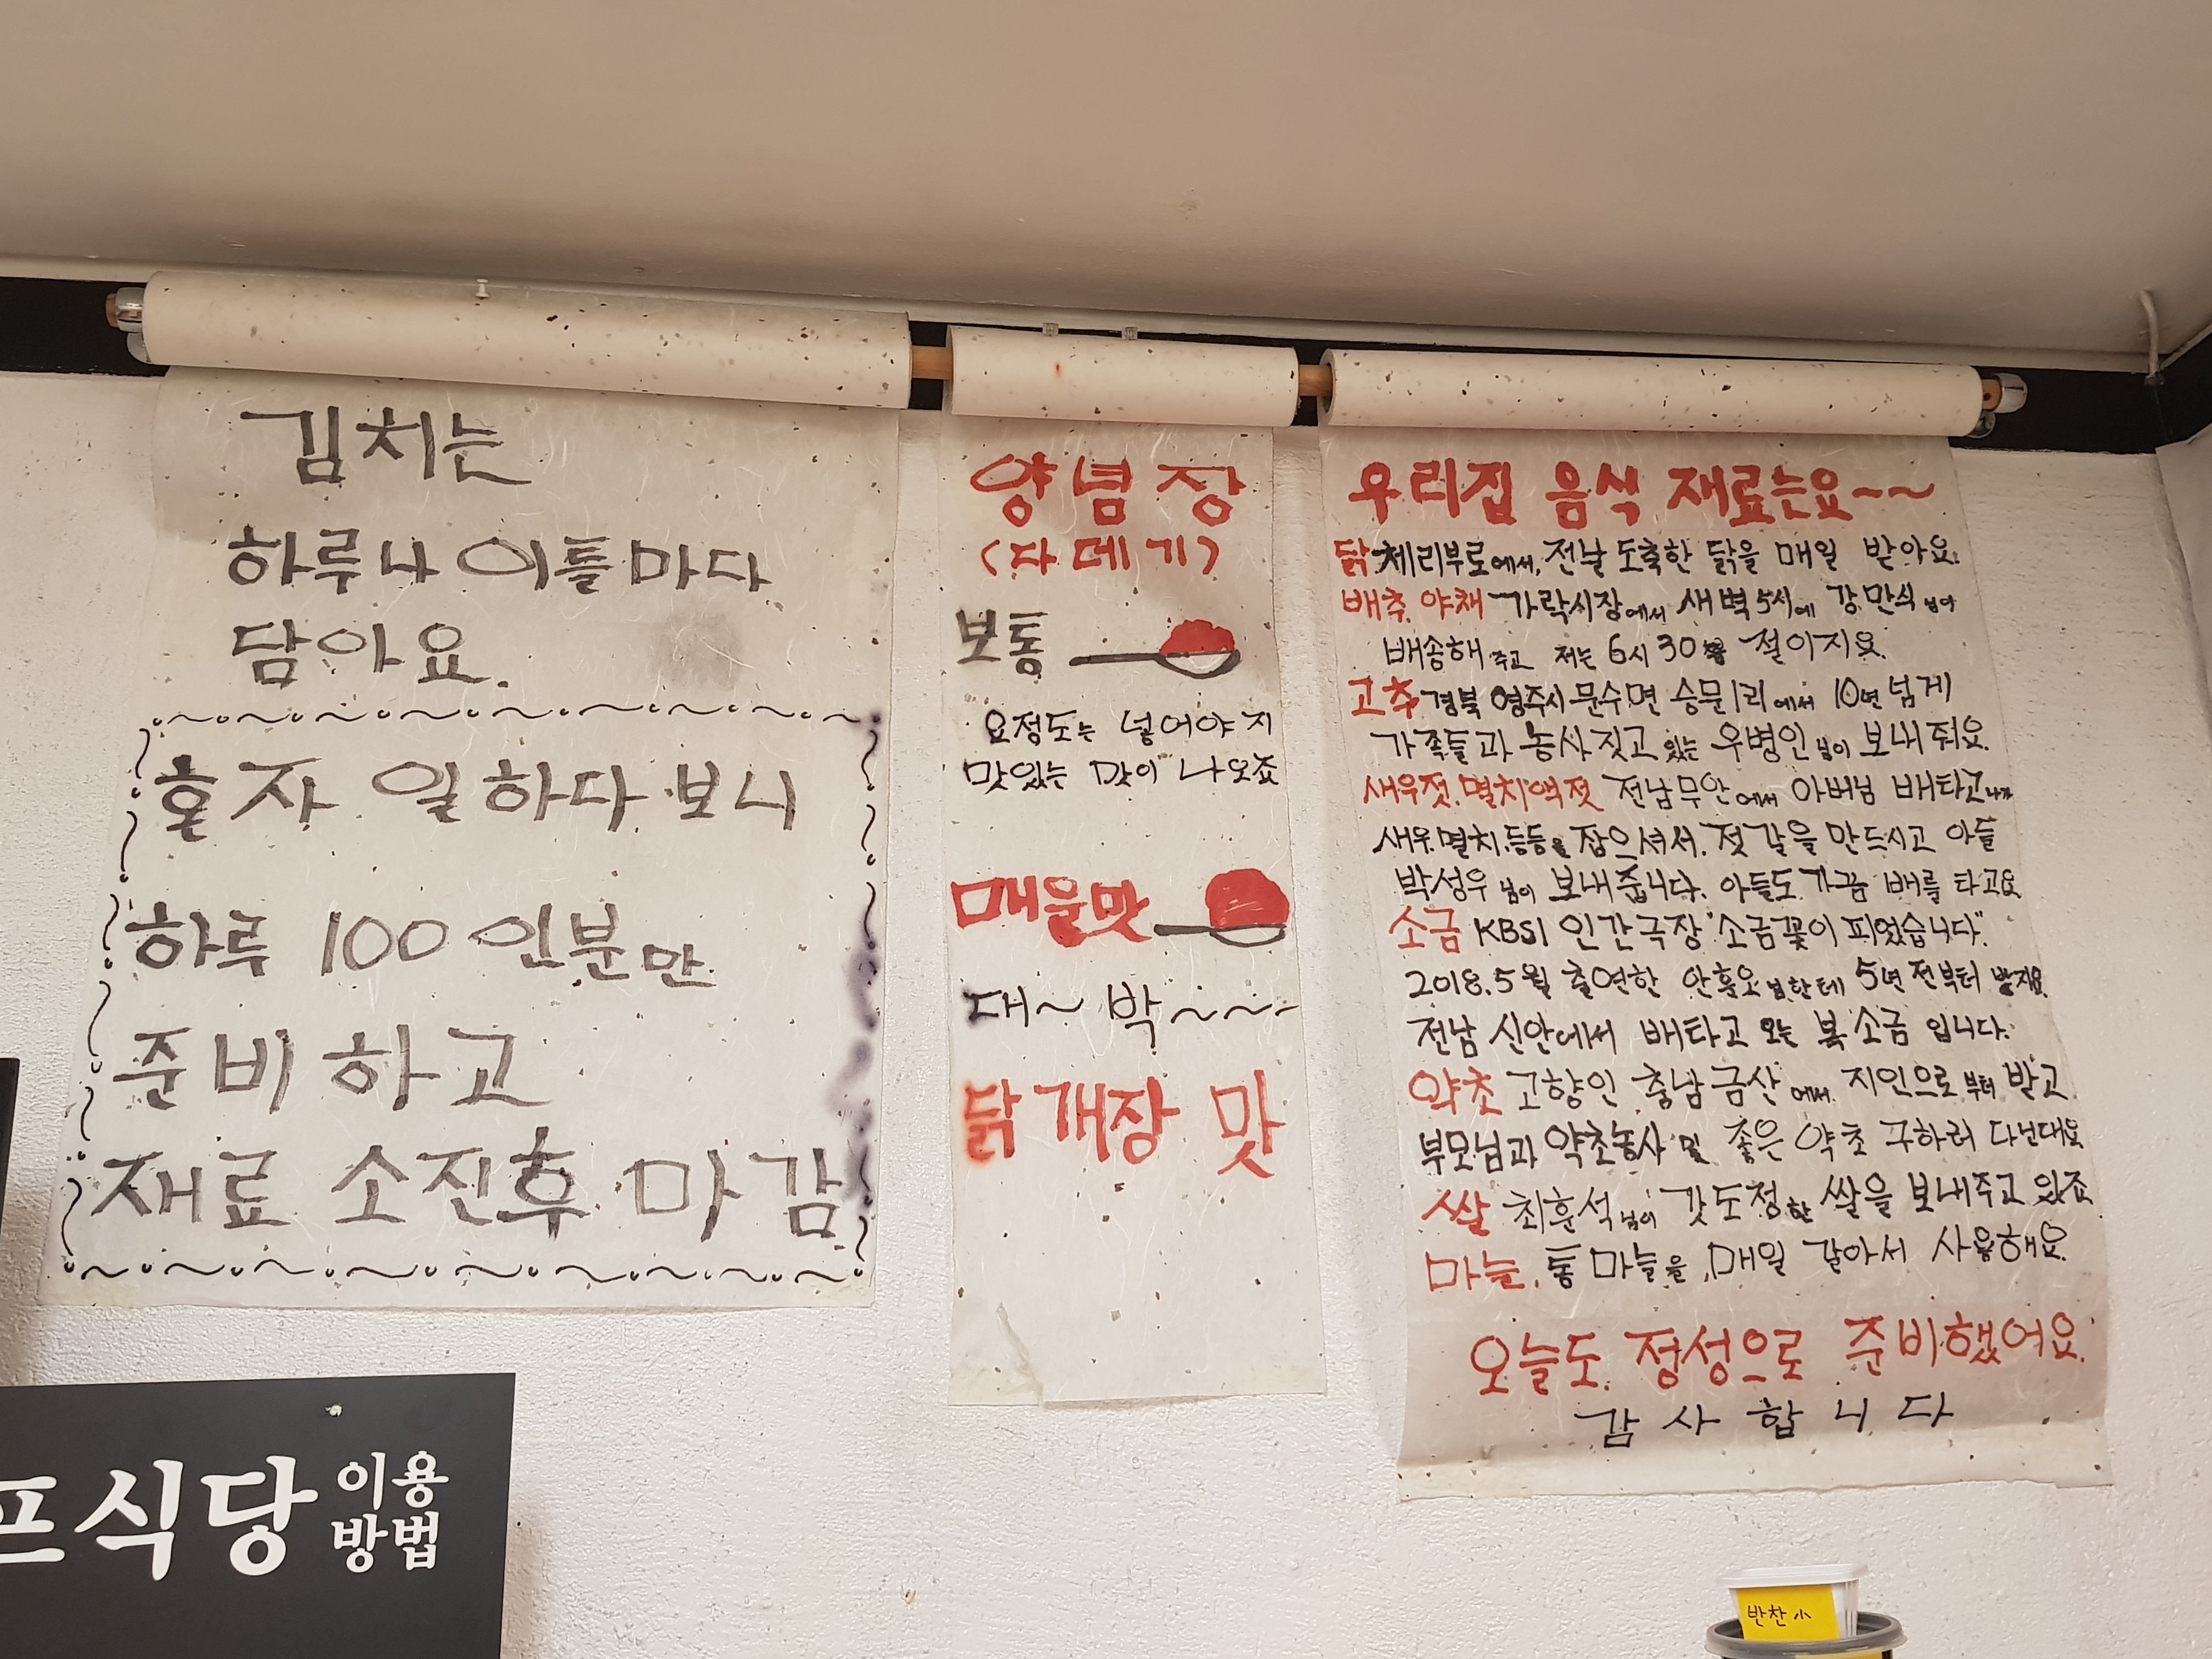 김치는
하루나 이틀마다
담아요.
혼자 일하다 보니
하루 100인분만
준비하고
재료 소진후 마감
양념장
(다데기)
보통
요정도는 넣어야지
맛있는 맛이 나오죠
매운맛
대~ 박~~~
닭개장 맛
우리집 음식 재료는요~~
닭 체리부로에서, 전날 도축한 닭을 매일 받아요.
배추, 야채 가락시장에서 새벽 5시에 강만식님이
배송해주고 저는 6시 30분 절이지요.
고추 경북 영주시 문수면 승문1리에서 10년 넘게
가족들과 농사 짓고 있는 우병인님이 보내줘요.
새우젓, 멸치액젓 전남무안에서 아버님 배타고
새우.멸치.등등을 잡으셔서, 젓갈을 만드시고 아들
박성우님이 보내줍니다. 아들도 가끔 배를 타고요
소금 KBS1 인간극장 "소금꽃이 피었습니다"
2018.5월 출연한 안흥오님한테 5년 전부터 받지요
전남 신안에서 배타고 오는 복소금 입니다.
약초 고향인 충남금산에서. 지인으로부터 받고
부모님과 약초농사 및 좋은 약초 구하러 다닌대요
쌀 최훈석님이 갓도정한 쌀을 보내주고 있죠
마늘. 통마늘을 매일 갈아서 사용해요
오늘도. 정성으로 준비했어요.
감사합니다
프식당 이용
방법
반찬 小